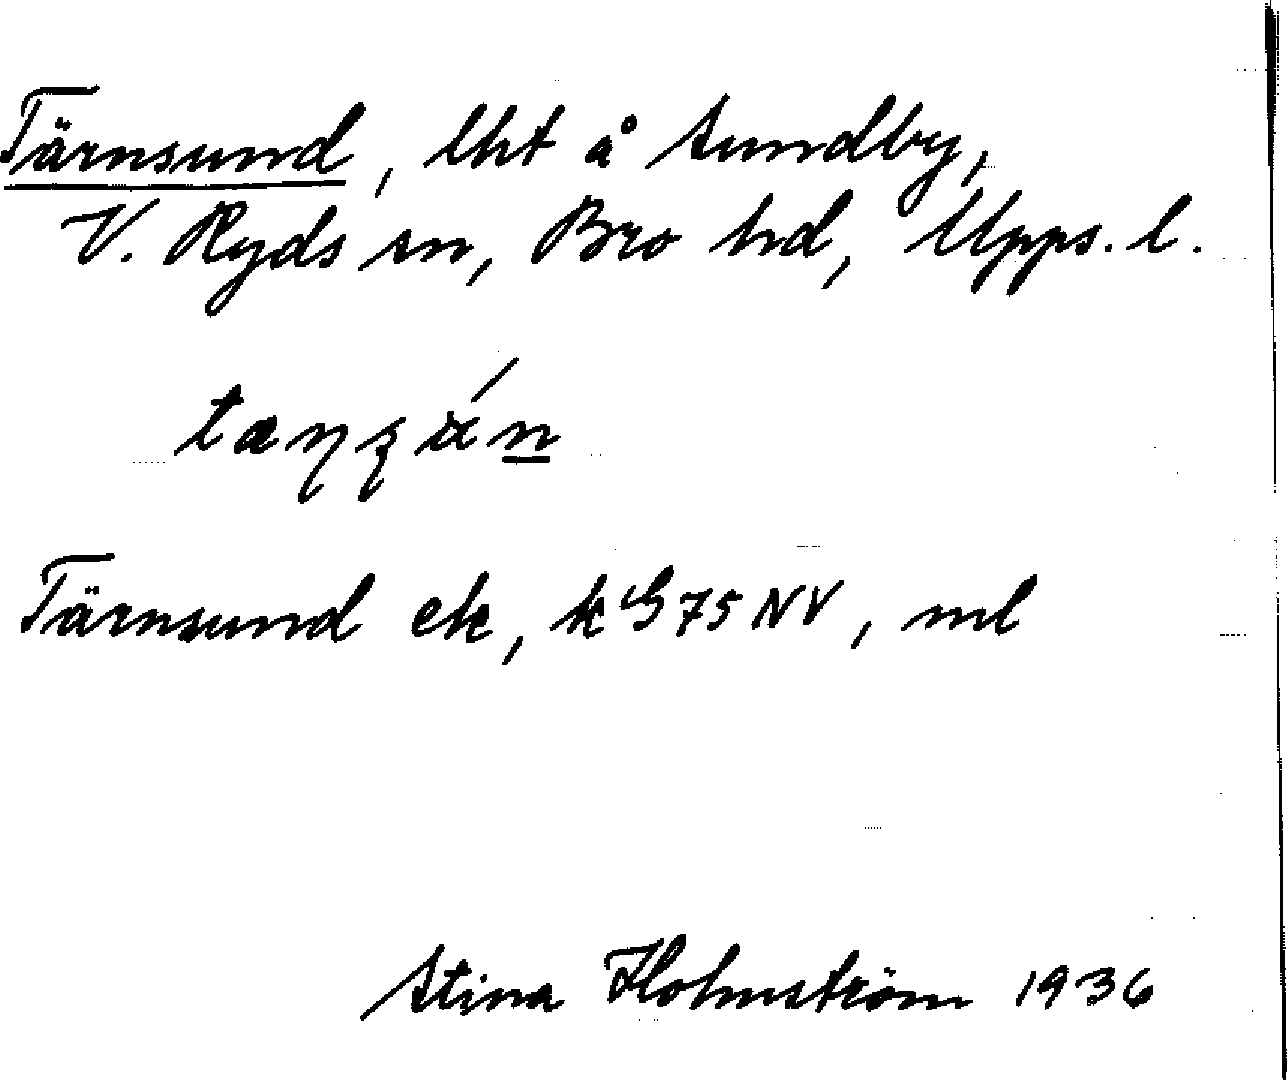 Tärnsund, lht å Sundby,
V. Ryds sn, Bro hd, Upps. l.
Tärnsund ek, k G 75 NV, ml
Stina Holmström 1936